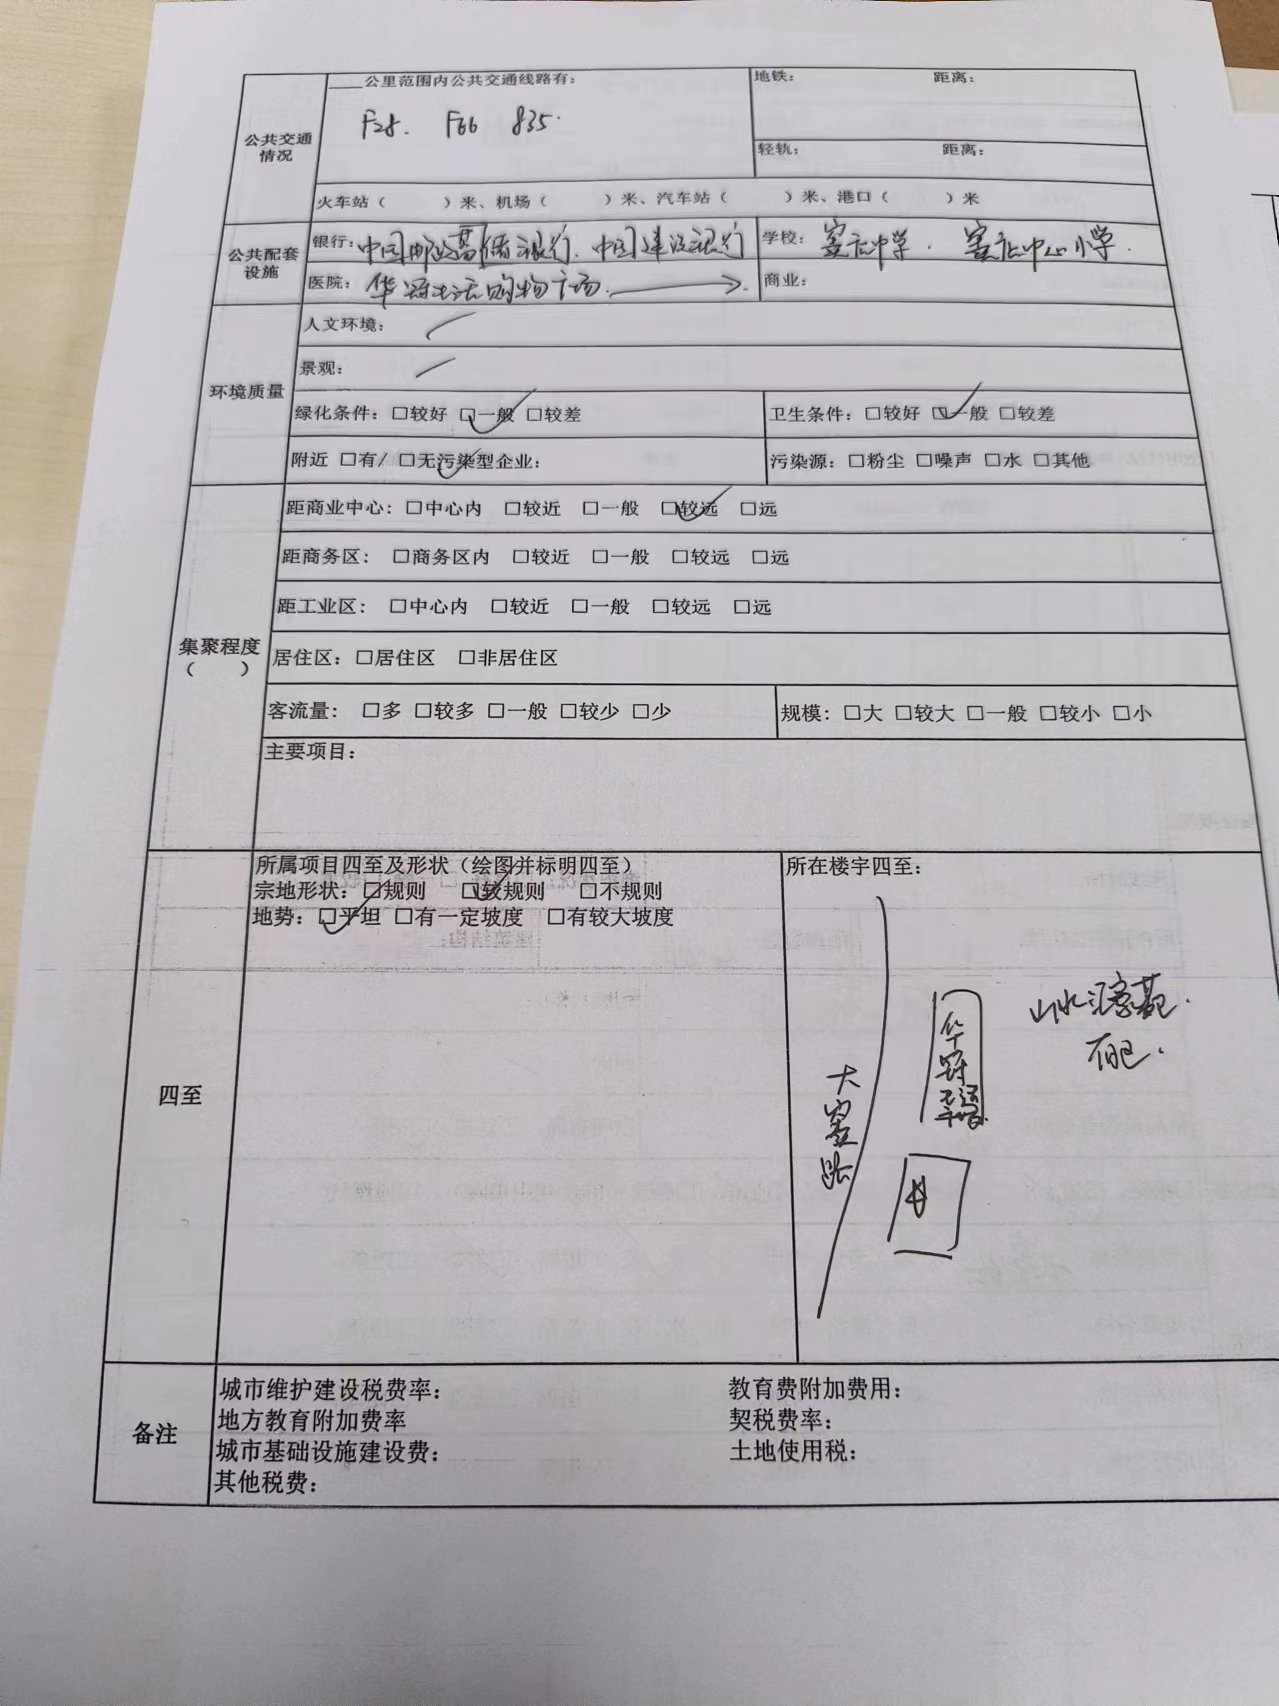 ____公里范围内公共交通线路有：
地铁： 距离：
F28. F66 835.
公共交通情况
轻轨： 距离：
火车站（ ）米、机场（ ）米、汽车站（ ）米、港口（ ）米
公共配套设施
银行：中国邮政储蓄银行. 中国建设银行
学校：窦店中学. 窦店中心小学.
医院：华冠生活购物广场. →.
商业：
环境质量
人文环境：
景观：
绿化条件：□较好 ☑一般 □较差
卫生条件：□较好 ☑一般 □较差
附近 □有/ ☑无污染型企业：
污染源：□粉尘 □噪声 □水 □其他
集聚程度（ ）
距商业中心：□中心内 □较近 □一般 ☑较远 □远
距商务区： □商务区内 □较近 □一般 □较远 □远
距工业区： □中心内 □较近 □一般 □较远 □远
居住区：□居住区 □非居住区
客流量： □多 □较多 □一般 □较少 □少
规模：□大 □较大 □一般 □较小 □小
主要项目：
四至
所属项目四至及形状（绘图并标明四至）
宗地形状：□规则 ☑较规则 □不规则
地势：☑平坦 □有一定坡度 □有较大坡度
所在楼宇四至：
山水汇豪苑.
大窦路
华冠
备注
城市维护建设税费率： 教育费附加费用：
地方教育附加费率 契税费率：
城市基础设施建设费： 土地使用税：
其他税费：